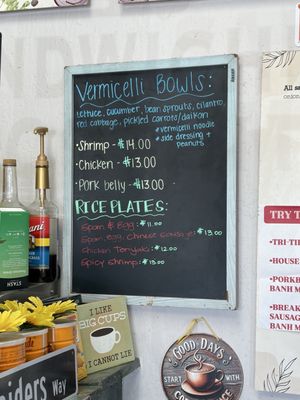 Vermicelli Bowls:
lettuce, cucumber, bean sprouts, cilantro,
red cabbage, pickled carrots/daikon
* vermicelli noodle
* side dressing +
peanuts
• Shrimp - $14.00
• Chicken - $13.00
• Pork belly - $13.00
RICE PLATES:
Spam & Egg : $11.00
Spam, egg, Chinese sausage : $13.00
Chicken Teriyaki : $12.00
Spicy shrimp : $13.00
I LIKE
BIG
CUPS
&
I CANNOT
LIE
GOOD DAYS
START WITH
COFFEE
All sa
TRY THE
TRI-TI
HOUSE
PORK
BANH M
BREAK
SAUSAG
BANH M
Way